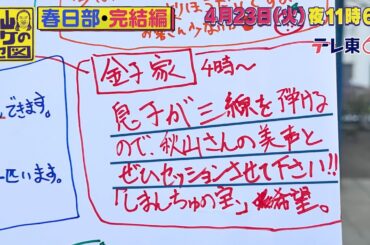 春日部・完結編
4月23日(火)夜11時6
テレ東
金子家
4時〜
できます。
息子が三線を弾ける
ので、秋山さんの美声と
ぜひセッションさせて下さい!!
「しまんちゅの宝」希望。
匹います。